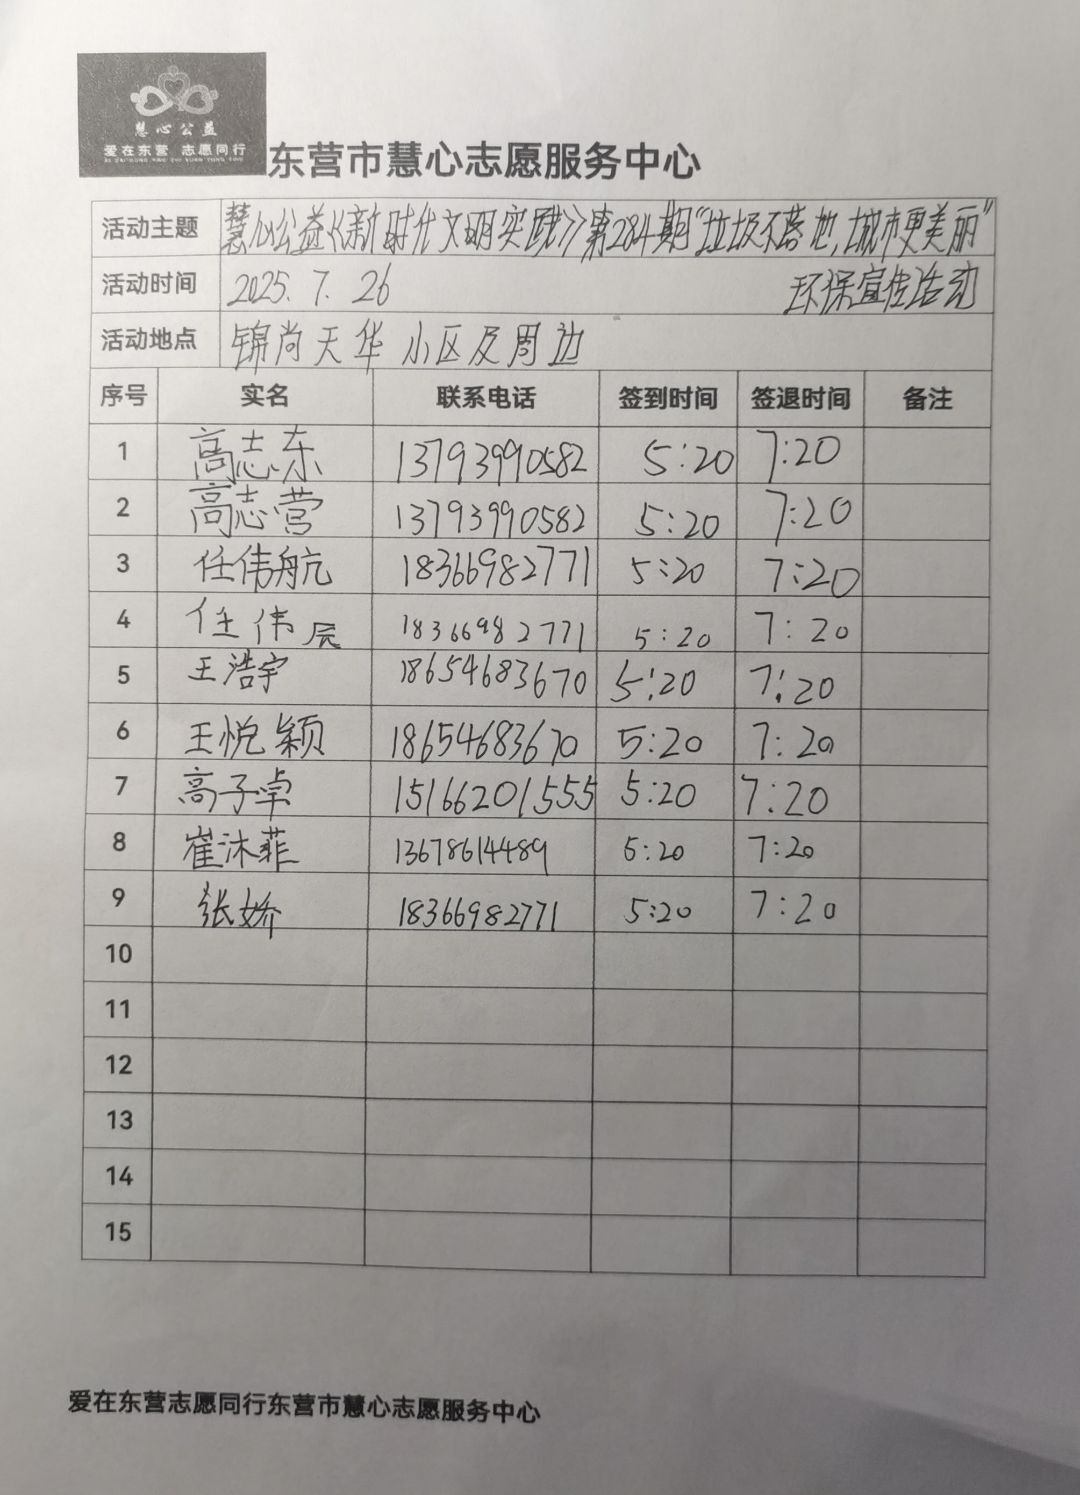 慧心公益
爱在东营 志愿同行
东营市慧心志愿服务中心
活动主题 慧心公益《新时代文明实践》第284期“垃圾不落地,城市更美丽”
环保宣传活动
活动时间 2025.7.26
活动地点 锦尚天华小区及周边
序号 实名 联系电话 签到时间 签退时间 备注
1 高志东 13793990582 5:20 7:20
2 高志营 13793990582 5:20 7:20
3 任伟航 18366982771 5:20 7:20
4 任伟辰 18366982771 5:20 7:20
5 王浩宇 18654683670 5:20 7:20
6 王悦颖 18654683670 5:20 7:20
7 高子卓 15166201555 5:20 7:20
8 崔沐菲 13678614489 5:20 7:20
9 张娇 18366982771 5:20 7:20
10
11
12
13
14
15
爱在东营志愿同行东营市慧心志愿服务中心